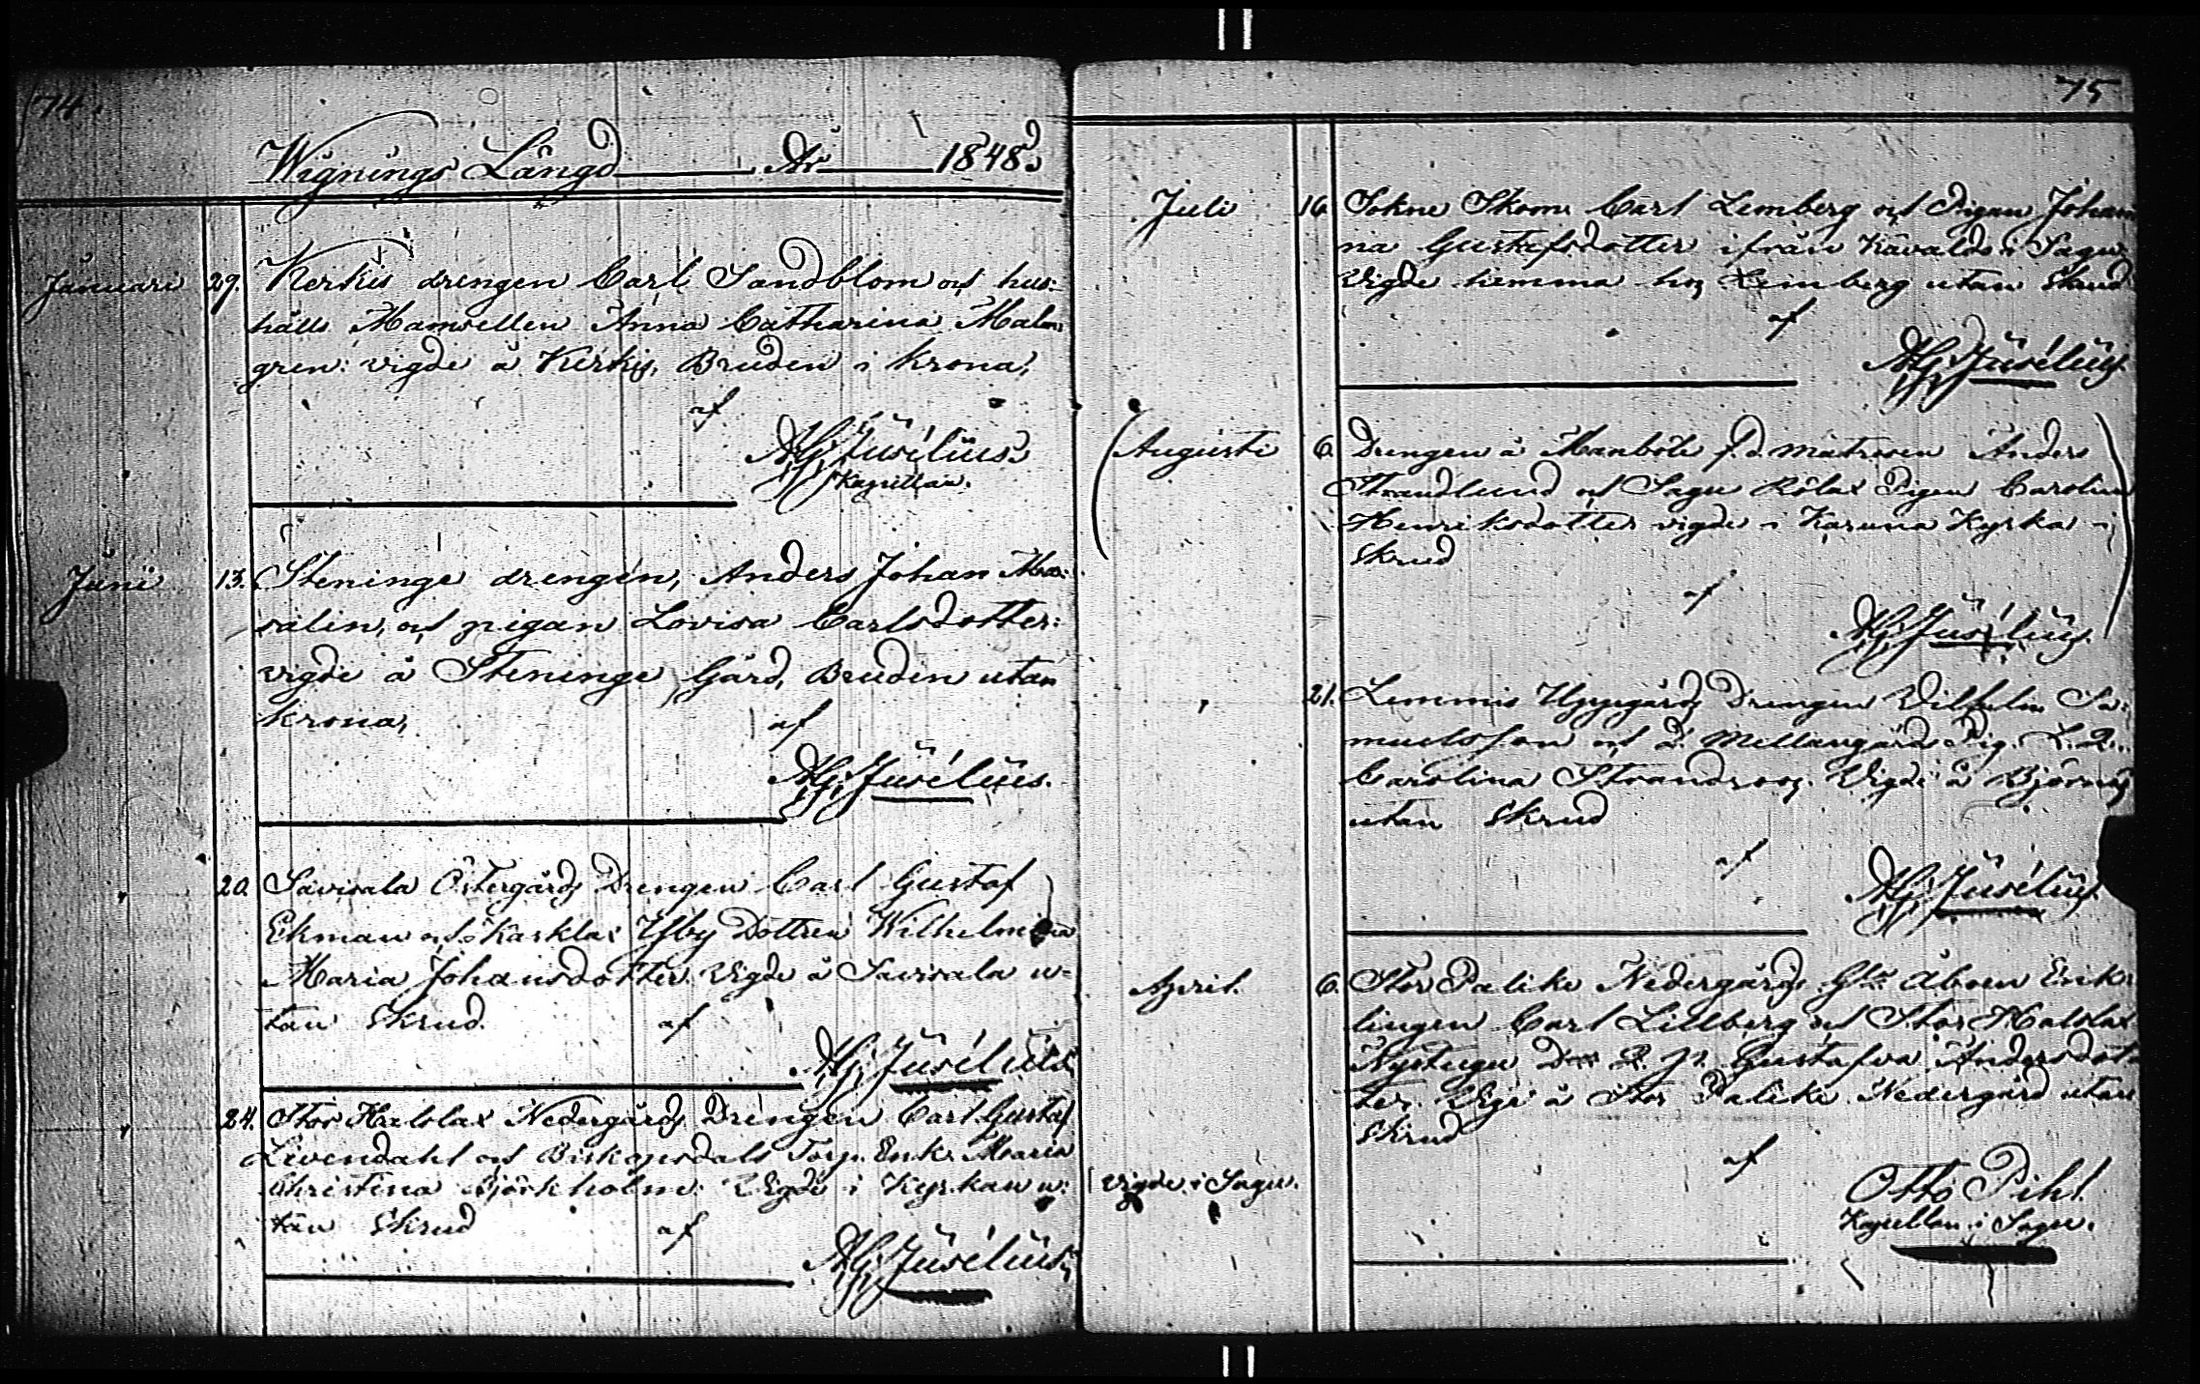 74.
Wignings Längd År 1848.
Januari 29. Kerkis drengen Carl Sandblom och hus:
hålls Mamsellen Anna Catharina Malm:
gren: vigde å Kerkis, Bruden i krona,
af
AGJusélius.
Kapellan.
Juni 13. Steninge drengen, Anders Johan Ma:
salin, och pigan Lovisa Carlsdotter:
vigde å Steninge Gård, Bruden utan
krona,
af
AGJusélius.
" 20. Savisala Östergårds Drengen Carl Gustaf
Ekman och Karklax Yfby Dottren Wilhelmina
Maria Johansdotter. Vigde å Savisala u-
tan Skrud.
af
AGJusélius
" 24. Stor Halslax Nedergårds Drengen Carl Gustaf
Levendahl och Biskopsdals Torp. Enk. Maria
Christina Björkholm. Vigde i Kyrkan u:
tan Skrud
af
AGJusélius.
75
Juli 16. Sokne Skom. Carl Lemberg och Pigan Johan
na Gustafsdotter ifrån Kavaldo i Sagu.
Vigde hemma hos Lemberg utan Skrud
af
AGJusélius.
Augusti 6. Drengen å Manböle f.d. matrosen Anders
Strandlund och Sagu Rölax Pigan Carolina
Henriksdotter vigde i Karuna Kyrka i
Skrud
af
AGJusélius.
" 21. Lemmis Uppgårds Drengen Vilhelm Sa:
muelsson och d: Mellangårds Pig.
Carolina Strandroos. Vigde å Björnäs
utan Skrud
af
AGJusélius.
April. 6. Stor Palike Nedergårds Åboen Enk:
lingen Carl Lillberg och Stor Halslax
Nystugu Gustafva Andersdot
ter. Vigde å Stor Palike Nedergård utan
Skrud
af
vigde i Sagu.
Otto Pihl
Kapellan i Sagu.